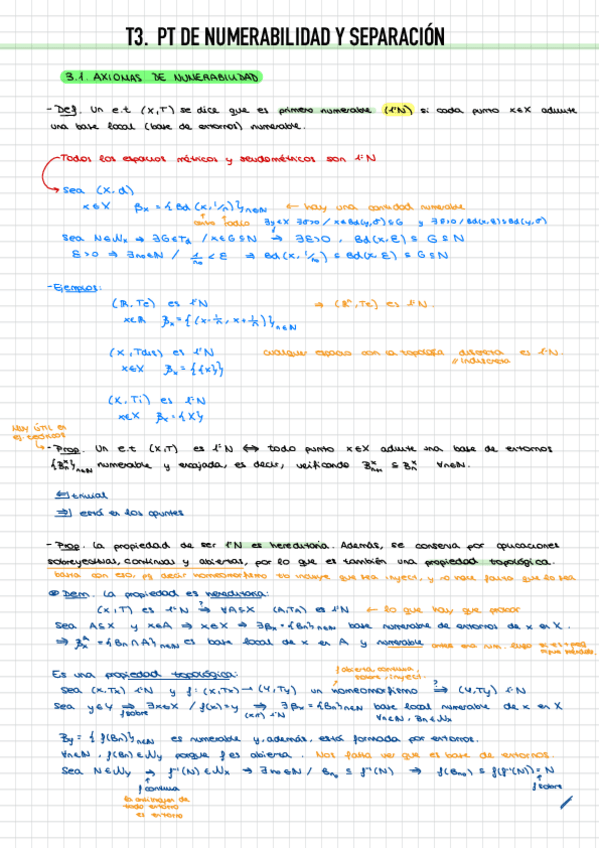 T3. PT DE NUMERABILIDAD Y SEPARACIÓN
3.1. AXIOMAS DE NUMERABILIDAD
- Def. Un e.t (X,T) se dice que es primero numerable (1ºN) si cada punto x∈X admite
una base local (base de entornos) numerable.
Todos los espacios métricos y seudométricos son 1ºN
Sea (X,d)
x∈X βx = {Bd(x,1/n)}n∈N ← hay una cantidad numerable
Sea N∈Nx ⇒ ∃G∈Td / x∈G⊆N ⇒ ∃ε>0, Bd(x,ε) ⊆ G ⊆ N
ε>0 ⇒ ∃n0∈N / 1/n0 < ε ⇒ Bd(x,1/n0) ⊆ Bd(x,ε) ⊆ G ⊆ N
- Ejemplos:
(R,Te) es 1ºN ⇒ (Rⁿ,Te) es 1ºN.
x∈R βx = {(x-1/n, x+1/n)}n∈N
(X,Tdis) es 1ºN cualquier espacio con la topología discreta es 1ºN.
// indiscreta
x∈X βx = {{x}}
(X,Ti) es 1ºN
x∈X βx = {X}
Muy útil en
- Prop. Un e.t (X,T) es 1ºN ⇔ todo punto x∈X admite una base de entornos
{Bnˣ}n∈N numerable y encajada, es decir, verificando Bn+1ˣ ⊆ Bnˣ ∀n∈N.
⇐| trivial
⇒| está en los apuntes
- Prop. La propiedad de ser 1ºN es hereditaria. Además, se conserva por aplicaciones
sobreyectivas, continuas y abiertas, por lo que es también una propiedad topológica.
basta con eso, pq decir homeomorfismo tb incluye que sea inyect, y no hace falta que lo sea
Dem. La propiedad es hereditaria:
(X,T) es 1ºN ⇒ ∀A⊆X (A,TA) es 1ºN ← lo que hay que probar
Sea A⊆X y x∈A ⇒ x∈X ⇒ ∃βx = {Bn}n∈N base numerable de entornos de x en X.
⇒ βxᴬ = {Bn∩A}n∈N es base local de x en A y numerable
Es una propiedad topológica:
f abierta, continua,
sobre, inyect.
Sea (X,Tx) 1ºN y f: (X,Tx) → (Y,Ty) un homeomorfismo ⇒? (Y,Ty) 1ºN
Sea y∈Y ⇒ ∃x∈X / f(x)=y ⇒ ∃βx = {Bn}n∈N base local numerable de x en X
f sobre (X 1ºN) ∀n∈N, Bn∈Nx
βy = {f(Bn)}n∈N es numerable y, además, está formada por entornos.
∀n∈N, f(Bn)∈Ny porque f es abierta. Nos falta ver que es base de entornos.
Sea N∈Ny ⇒ f⁻¹(N)∈Nx ⇒ ∃n0∈N / Bn0 ⊆ f⁻¹(N) ⇒ f(Bn0) ⊆ f(f⁻¹(N)) = N
f continua f sobre
la antiimagen de
todo entorno
es entorno